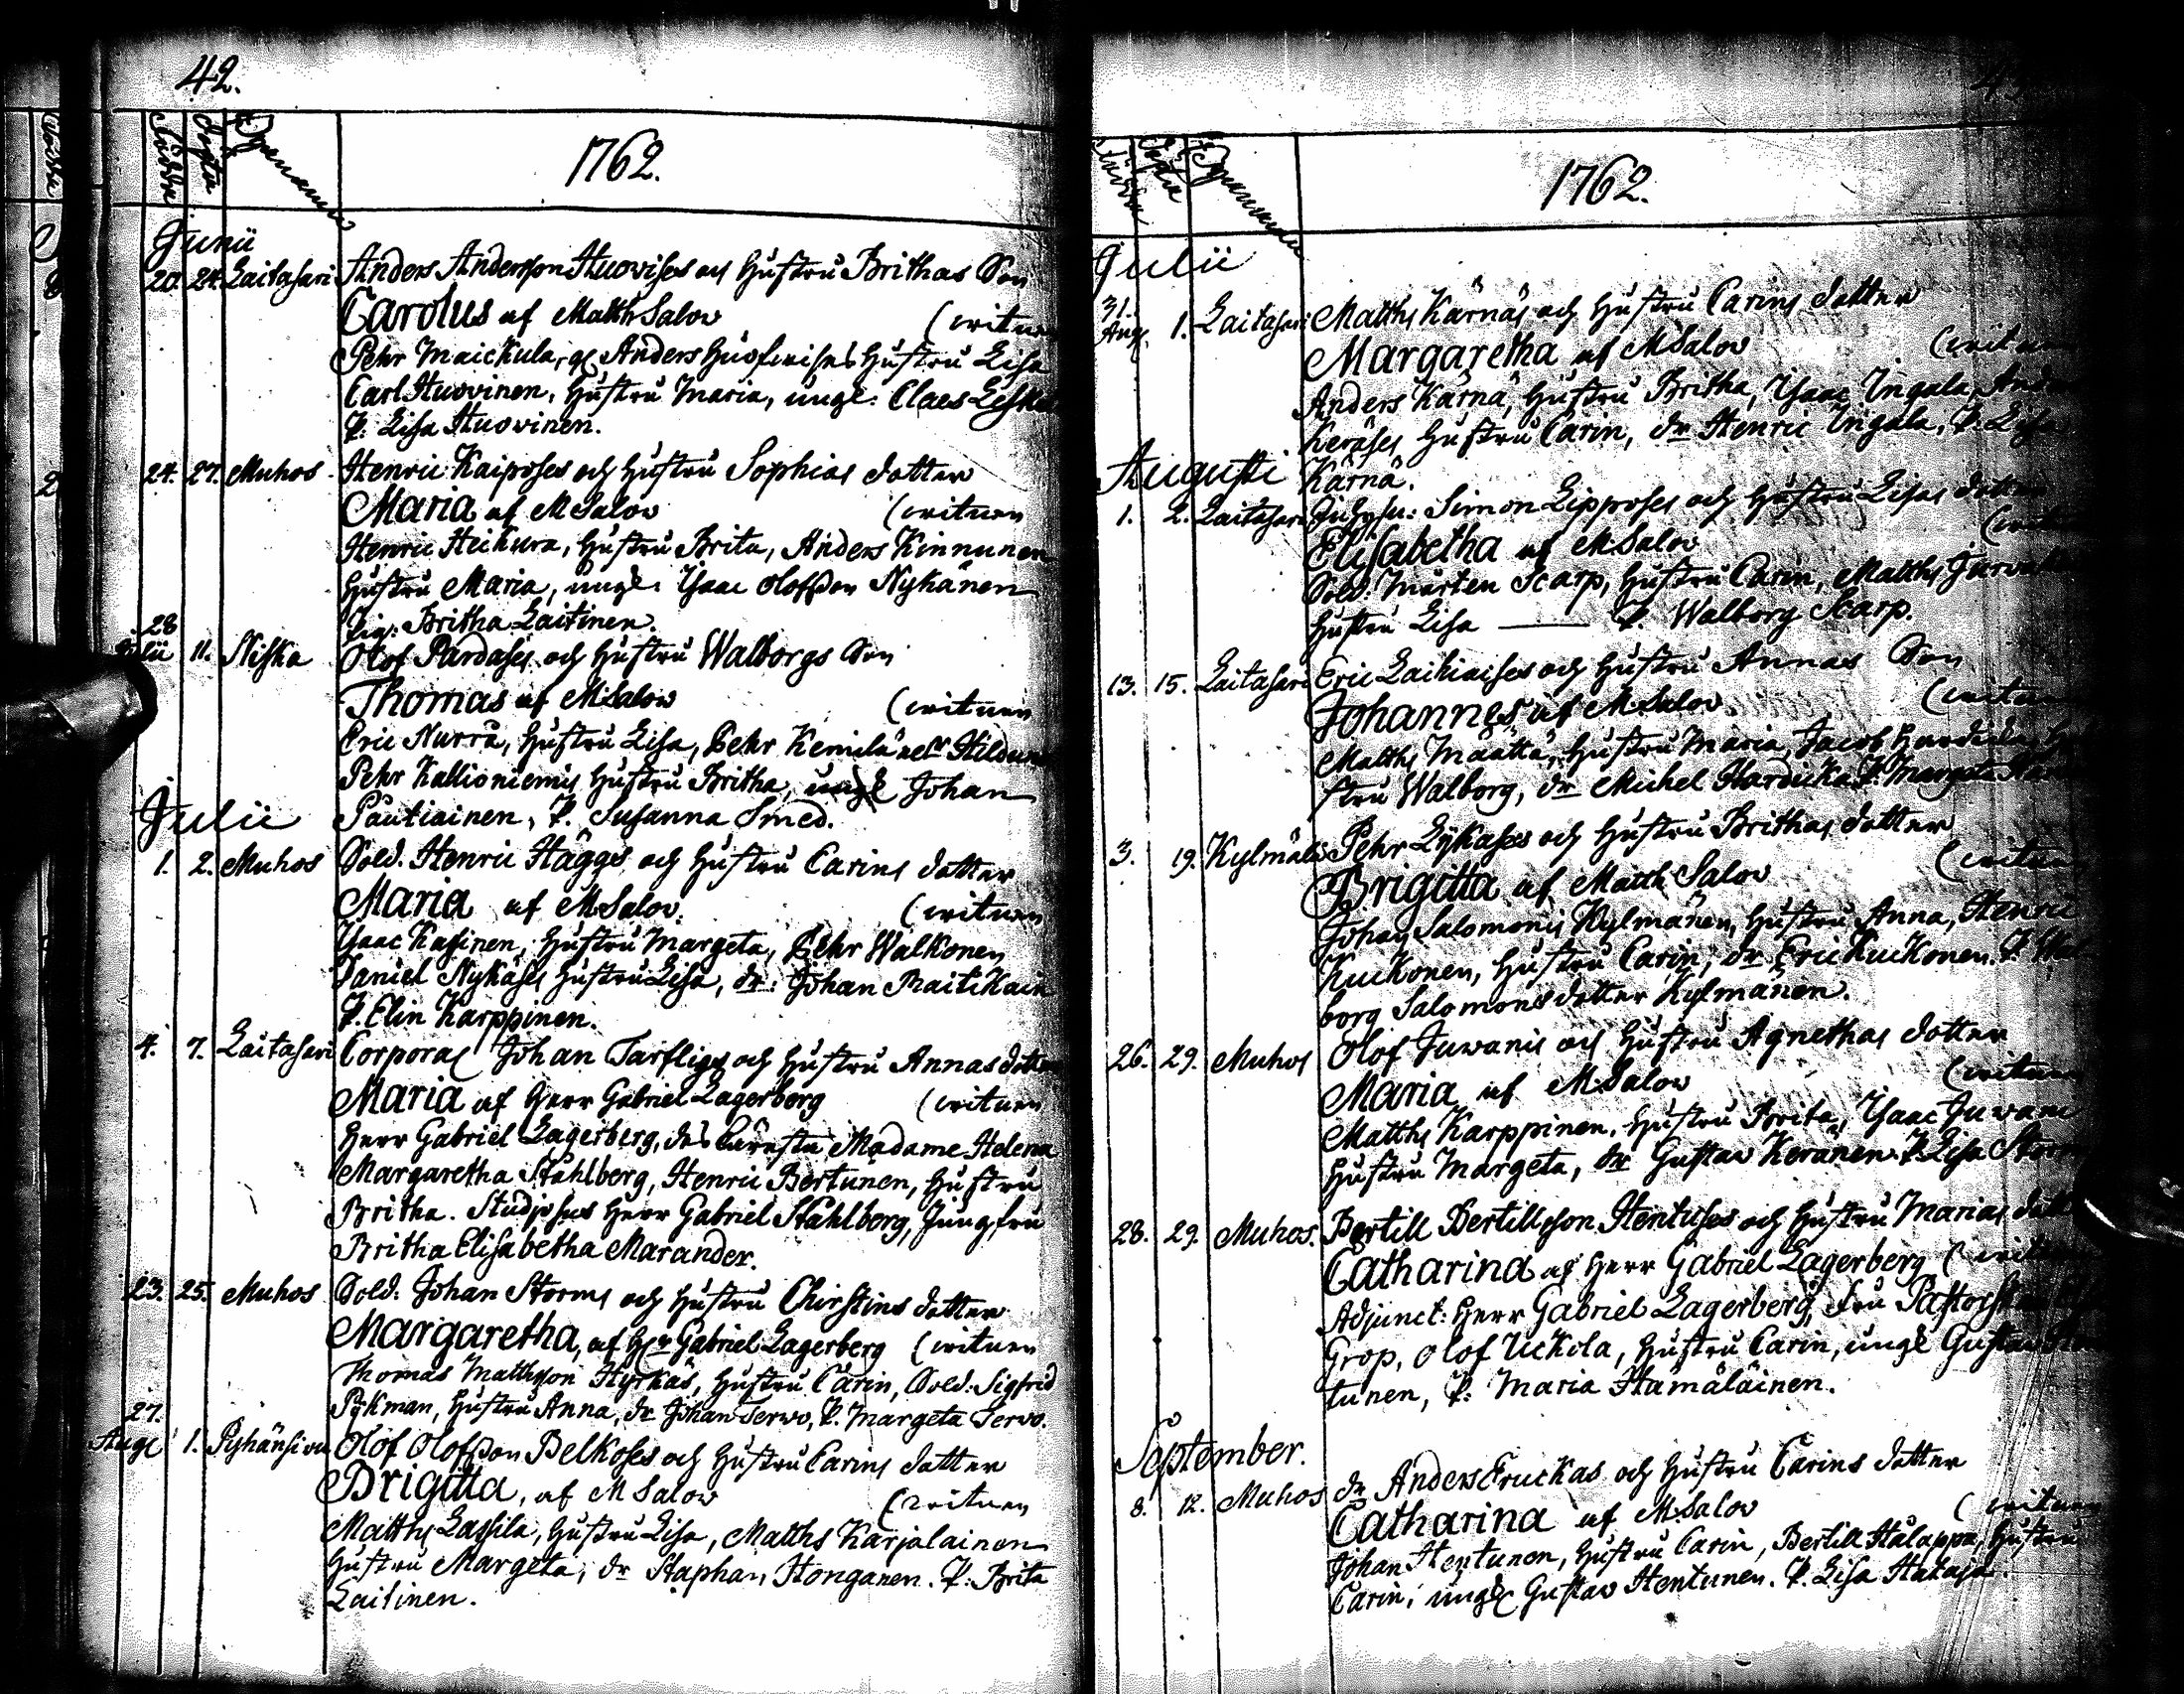 42.
Födde Döpte Byarnamn
1762.
Junii
20. 24. Laitasari Anders Andersson Huovises och Hustru Brithas Son
Carolus af Matth Salov (vitnen
Pehr Maickula, gl Anders Huofvises Hustru Lisa
Carl Huovinen, Hustru Maria, ungk. Claes
P. Lisa Huovinen.
24. 27. Muhos Henric Kaiposes och Hustru Sophias dotter
Maria af M Salov (vitnen
Henric Heikura, Hustru Brita, Anders Kinnunen
Hustru Maria, ungk. Isaac Olofsson Nykänen
Pig. Britha Laitinen.
28
Julii 11. Niska Olof Pardases och Hustru Walborgs Son
Thomas af M Salov (vitnen
Eric Nurra, Hustru Lisa, Pehr
Pehr Kallioniemis Hustru Britha, ungk Johan
Pautiainen, P. Susanna Smed.
Julii
1. 2. Muhos Sold. Henric Häggs och Hustru Carins dotter
Maria af M Salov. (vitnen
Isaac Kasinen, Hustru Margeta, Pehr Walkonen
Daniel Nykäses Hustru Lisa, dr: Johan
P. Elin Karppinen.
4. 7. Laitasari Corporal Johan Tarfligs och Hustru Annas dotter
Maria af Herr Gabriel Lagerberg (vitnen
Herr Gabriel Lagerberg, des käresta Madame Helena
Margaretha Ståhlberg, Henric Bertunen, Hustru
Britha. Studiosus Herr Gabriel Ståhlberg, Jungfru
Britha Elisabetha Marander.
23. 25. Muhos Sold: Johan Storms och Hustru Chirstins dotter
Margaretha, af Hr Gabriel Lagerberg (vitnen
Thomas Matthsson Hyrkäs, Hustru Carin, Sold: Sigfrid
Pykman, Hustru Anna, dr Johan Servo, P. Margeta Servo.
27.
Aug 1. Pyhänsivu Olof Olofsson Belkoses och Hustru Carins dotter
Brigitta, af M Salov (vitnen
Matths Lassila, Hustru Lisa, Matths Karjalainen
Hustru Margeta, dr Staphan Honganen. P: Brita
Laitinen.
Födde Döpte Byarnamn
1762.
Julii
31.
Aug. 1. Laitasari Matths Kärnäs och Hustru Carins dotter
Margaretha af M Salov (vitnen
Anders Kärnä, Hustru Britha, Isaac Ingala,
Keräses Hustru Carin, dr Henric Ingala, P. Lisa
Kärnä.
Augusti
1. 2. Laitasari Simon Lipposes och Hustru Lisas dotter
Elisabetha af M Salov
Sold: Mårten Scarp, Hustru Carin, Matths
Hustru Lisa — P. Walborg Scarp.
13. 15. Laitasari Eric Laikiaises och Hustru Annas Son
Johannes af M Salov. (vitnen
Matths Määttä, Hustru Maria, Jacob
stru Walborg, dr Michel Hardicka P. Margeta
3. 19. Kylmälä Pehr Lykases och Hustru Brithas dotter
Brigitta af Matth Salov (vitnen
Johan Salomonis Kylmänen, Hustru Anna, Henric
Kuckonen, Hustru Carin, dr Eric Kuckonen. P.
borg Salomonsdotter Kylmänen.
26. 29. Muhos Olof Juwanis och Hustru Agnethas dotter
Maria af M Salov (vitnen
Matths Karppinen, Hustru Brita, Isaac Juwani
Hustru Margeta, dr Gustav Keränen P. Lisa
28. 29. Muhos. Bertill Bertillsson Hentuses och Hustru Marias dotter
Catharina af Herr Gabriel Lagerberg (vitnen
Adjunct: Herr Gabriel Lagerberg, Fru
Grop, Olof Uckola, Hustru Carin, ungk Gustav
tunen, P: Maria Hämäläinen.
September.
8. 12. Muhos dr Anders Fruckas och Hustru Carins dotter
Catharina af M Salov (vitnen
Johan Hentunen, Hustru Carin, Bertill Halappa, Hustru
Carin, ungk Gustav Hentunen. P. Lisa